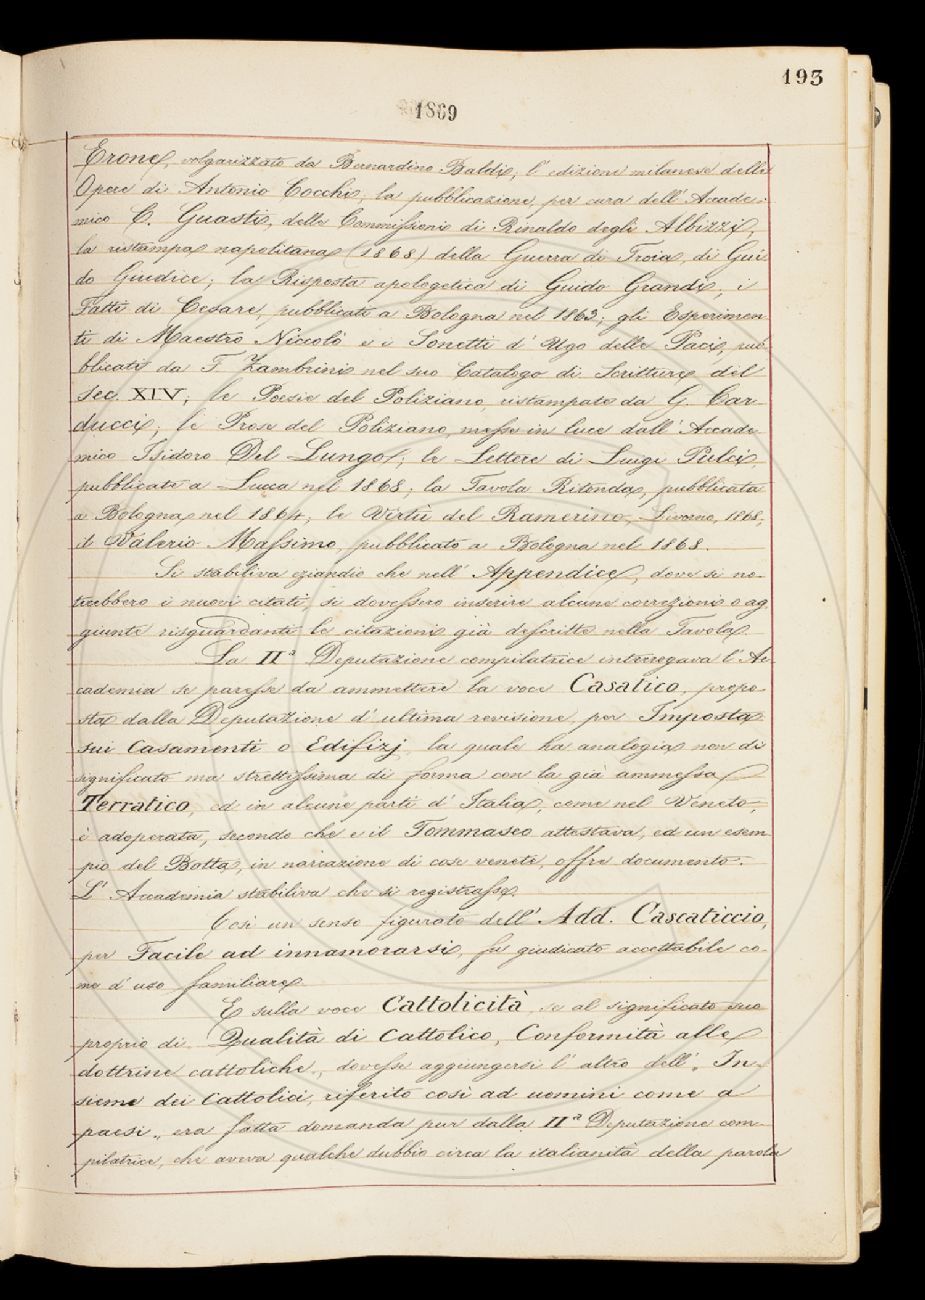 193
1869
Erone, volgarizzato da Bernardino Baldi; l'edizione milanese delle
Opere di Antonio Cocchi; la pubblicazione, per cura dell'Accade-
mico C. Guasti, delle Commissioni di Rinaldo degli Albizzi,
la ristampa napolitana (1868) della Guerra di Troia, di Gui-
do Giudice; la Risposta apologetica di Guido Grandi; i
Fatti di Cesare, pubblicati a Bologna nel 1863; gli Esperimen-
ti di Maestro Niccolò e i Sonetti d'Ugo delle Paci, pub-
blicati da F. Zambrini nel suo Catalogo di Scritture del
sec. XIV; le Poesie del Poliziano, ristampate da G. Car-
ducci; le Prose del Poliziano, messe in luce dall'Accade-
mico Isidoro Del Lungo; le Lettere di Luigi Pulci,
pubblicate a Lucca nel 1868; la Tavola Ritonda, pubblicata
a Bologna nel 1864; le Virtù del Ramerino, Livorno, 1868;
il Valerio Massimo, pubblicato a Bologna nel 1868.
Si stabiliva eziandio che nell'Appendice, dove si no-
terebbero i nuovi citati, si dovessero inserire alcune correzioni o ag-
giunte risguardanti le citazioni già descritte nella Tavola.
La IIª Deputazione compilatrice interrogava l'Ac-
cademia se paresse da ammettere la voce Casatico, propo-
sta dalla Deputazione d'ultima revisione per Imposta
sui Casamenti o Edifizj, la quale ha analogia non di
significato ma strettissima di forma con la già ammessa
Terratico, ed in alcune parti d'Italia, come nel Veneto,
è adoperata, secondo che e il Tommaseo attestava, ed un esem-
pio del Botta, in narrazione di cose venete, offre documento.
L'Accademia stabiliva che si registrasse.
Così un senso figurato dell'Add. Cascaticcio,
per Facile ad innamorarsi, fu giudicato accettabile co-
me d'uso familiare.
E sulla voce Cattolicità, se al significato suo
proprio di Qualità di Cattolico, Conformità alle
dottrine cattoliche„, dovesse aggiungersi l'altro dell'„In-
sieme dei Cattolici, riferito così ad uomini come a
paesi„, era fatta domanda pur dalla IIª Deputazione com-
pilatrice, che aveva qualche dubbio circa la italianità della parola